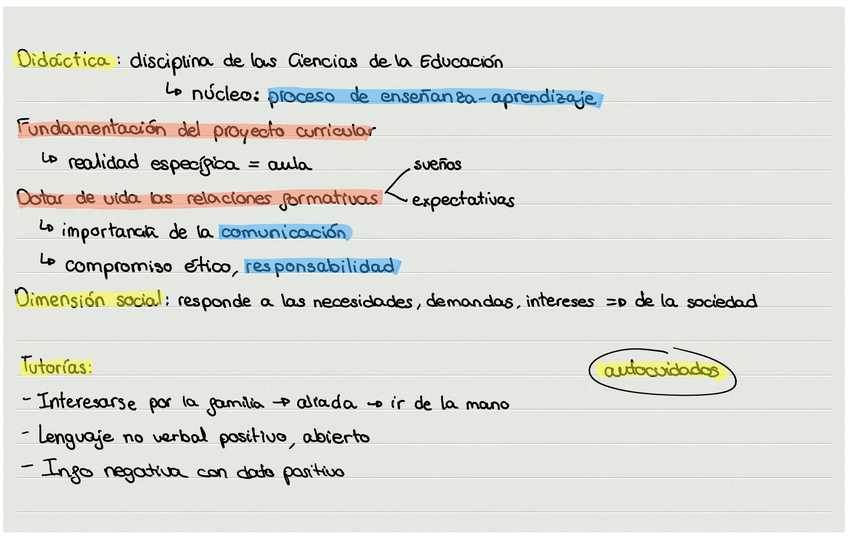 Didáctica: disciplina de las Ciencias de la Educación
↳ núcleo: proceso de enseñanza-aprendizaje
Fundamentación del proyecto curricular
↳ realidad específica = aula
sueños
Dotar de vida las relaciones formativas
expectativas
↳ importancia de la comunicación
↳ compromiso ético, responsabilidad
Dimensión social: responde a las necesidades, demandas, intereses => de la sociedad
Tutorías:
autocuidados
- Interesarse por la familia → aliada → ir de la mano
- Lenguaje no verbal positivo, abierto
- Info negativa con dato positivo